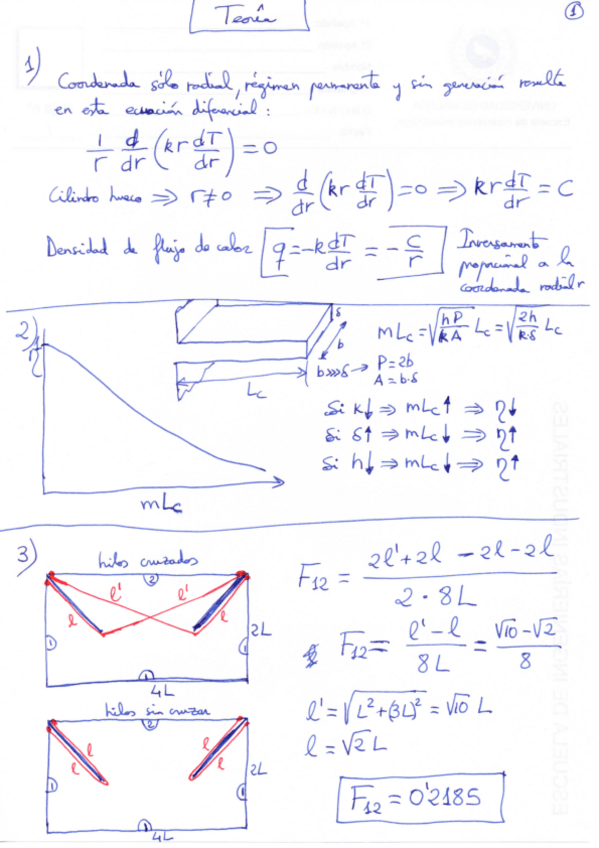 Teoría
1
1)
Coordenada sólo radial, régimen permanente y sin generación resulta
en esta ecuación diferencial:
1/r d/dr (kr dT/dr) = 0
Cilindro hueco ⇒ r≠0 ⇒ d/dr (kr dT/dr) = 0 ⇒ kr dT/dr = C
Densidad de flujo de calor q = -k dT/dr = -C/r Inversamente
proporcional a la
coordenada radial r
2)
1
η
mLc
δ
b
Lc
mLc = √(hP/kA) Lc = √(2h/k·δ) Lc
b>>>δ → P=2b
A=b·δ
Si k↓ ⇒ mLc↑ ⇒ η↓
Si δ↑ ⇒ mLc↓ ⇒ η↑
Si h↓ ⇒ mLc↓ ⇒ η↑
3)
hilos cruzados
2
l' l'
l l
1 1
2L
1
4L
hilos sin cruzar
2
l l
l l
1 1
2L
1
4L
F12 = (2l'+2l -2l-2l)/(2·8L)
F12 = (l'-l)/8L = (√10-√2)/8
l' = √(L²+(3L)²) = √10 L
l = √2 L
F12 = 0'2185
ESCUELA DE INGENIEROS INDUSTRIALES